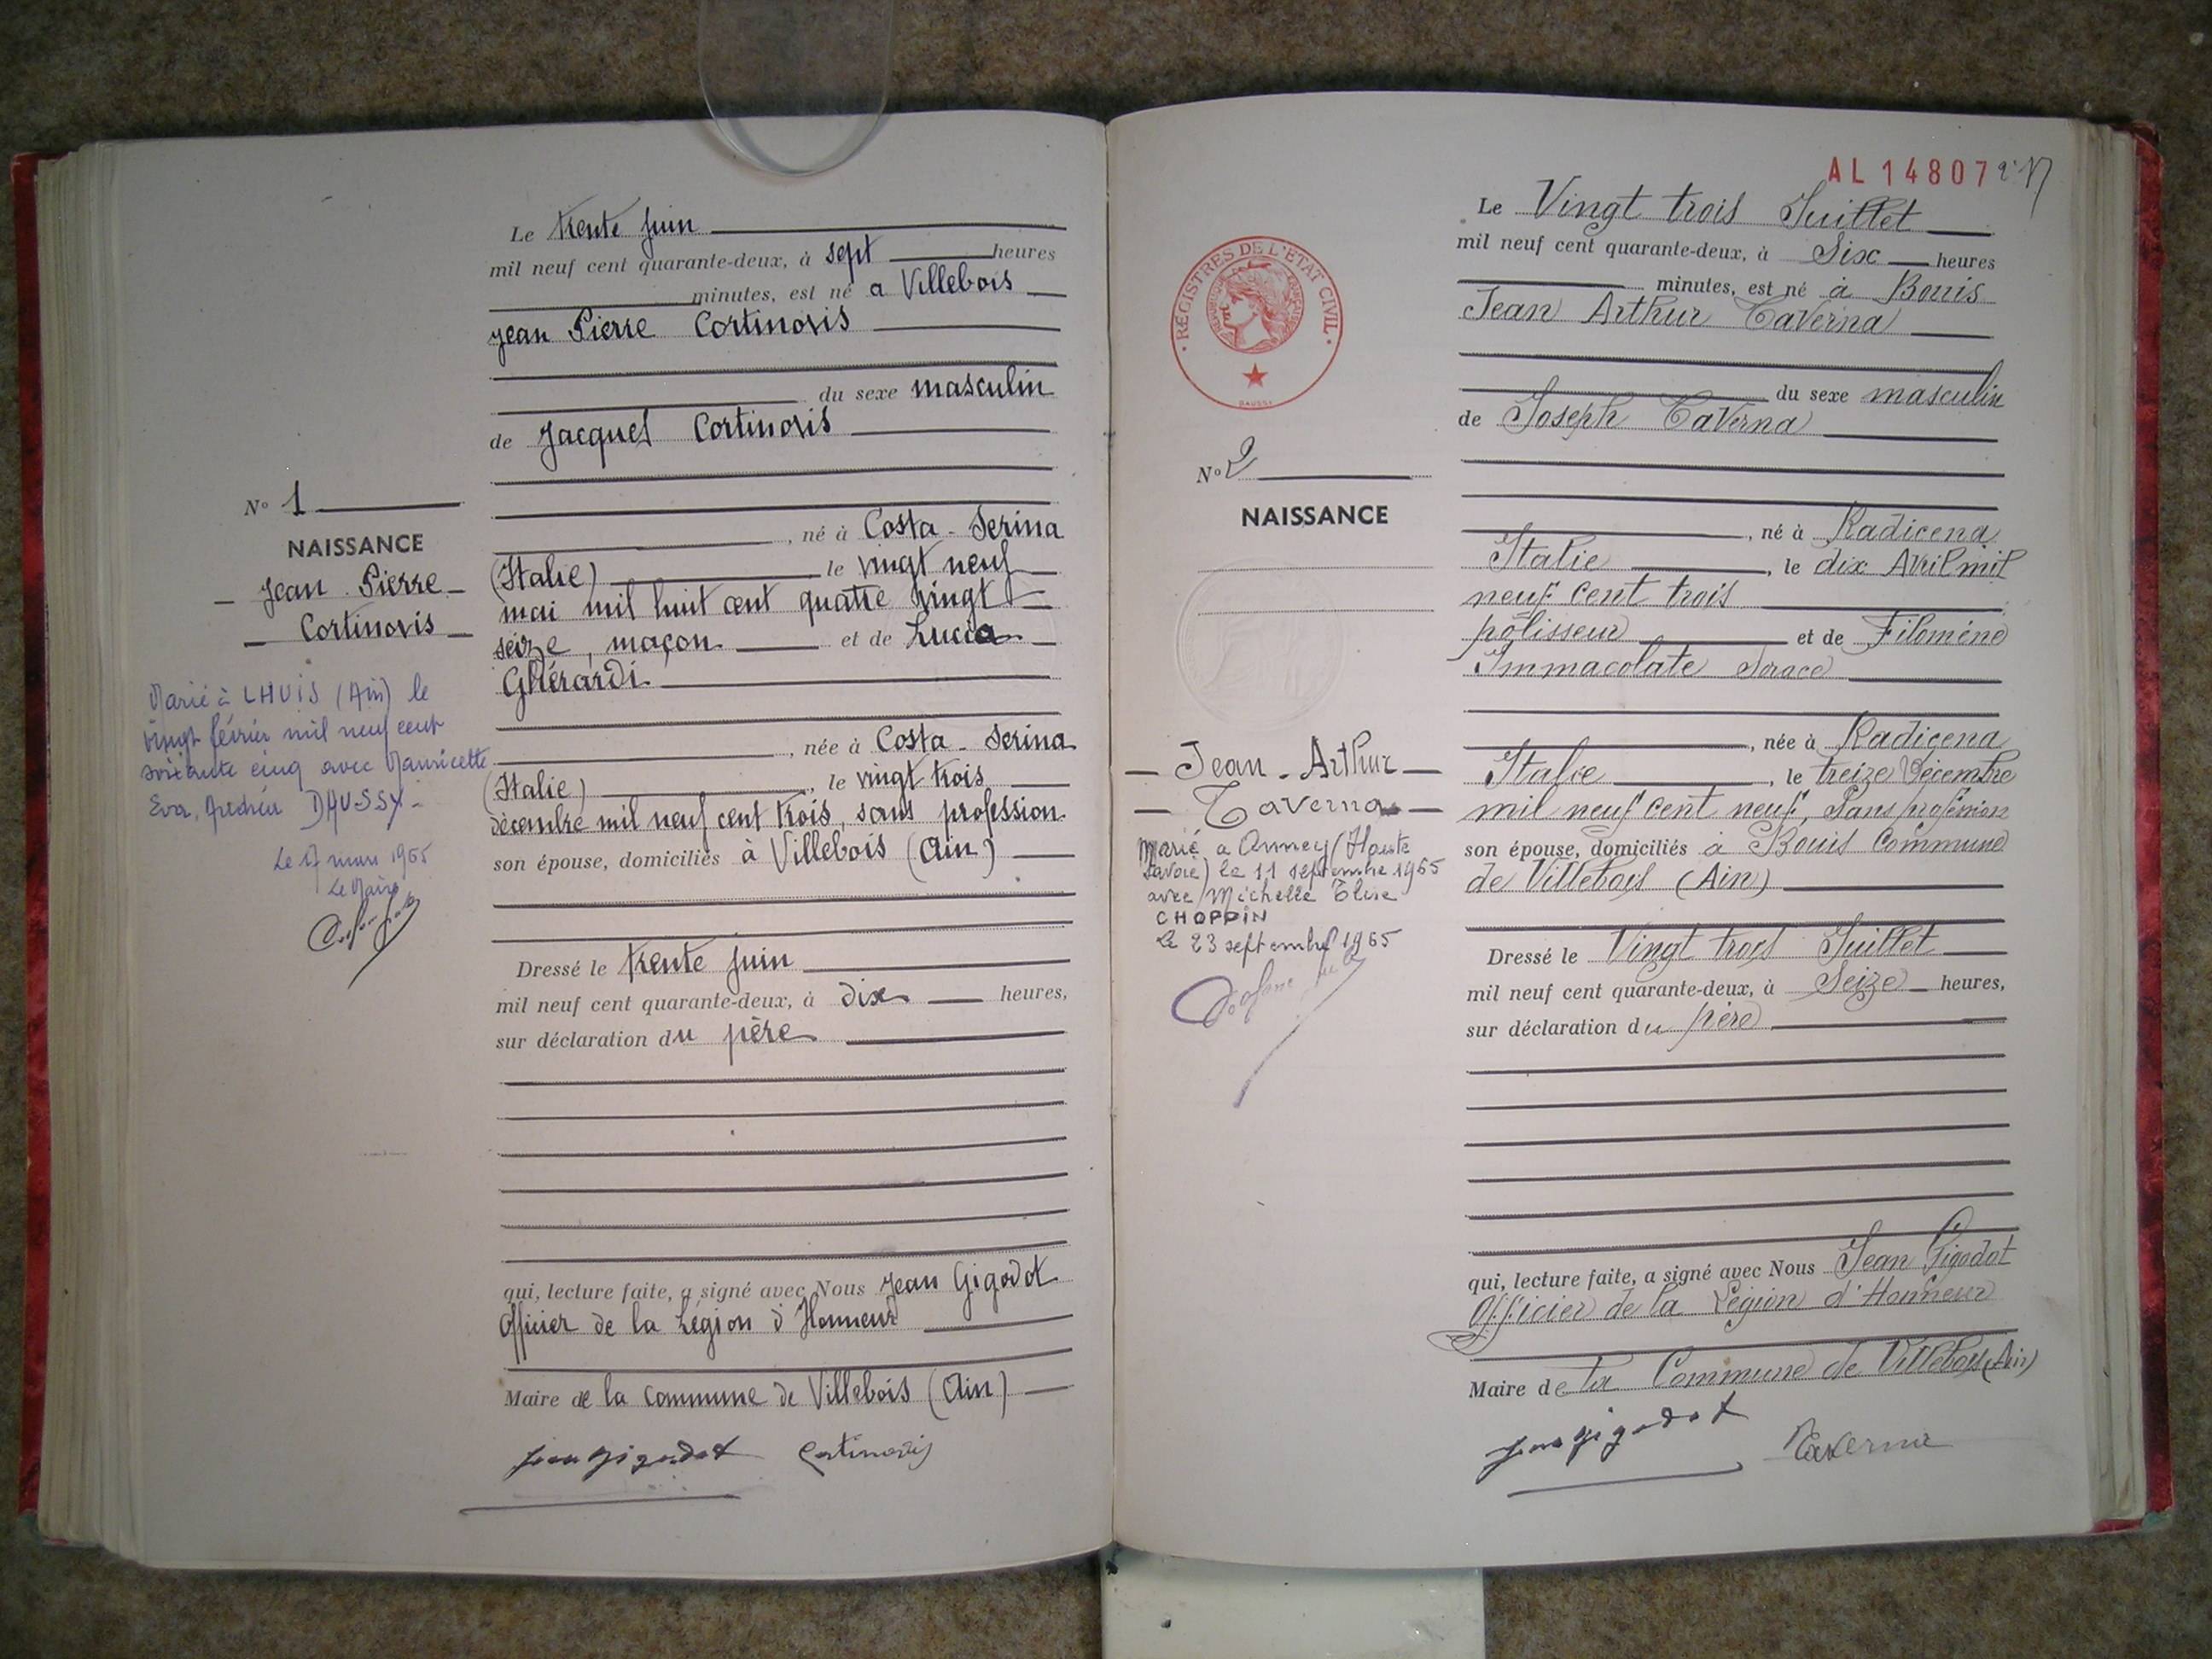 Le trente juin
mil neuf cent quarante-deux, à sept heures
minutes, est né a Villebois
Jean Pierre Cortinovis
du sexe masculin
de Jacques Cortinovis
N° 1
NAISSANCE
Jean Pierre
Cortinovis
, né à Costa-Serina
(Italie) le vingt neuf
mai mil huit cent quatre vingt
seize, maçon et de Lucia
Ghérardi
, née à Costa-Serina
(Italie), le vingt trois
décembre mil neuf cent trois, sans profession
son épouse, domiciliés à Villebois (Ain)
Marié à LHUIS (Ain) le
vingt février mil neuf cent
soixante cinq avec Mauricette
Eva, Andréa DAUSSY-
Le 17 mars 1965
Le Maire
Dressé le trente juin
mil neuf cent quarante-deux, à dix heures,
sur déclaration du père
qui, lecture faite, a signé avec Nous Jean Gigodot
Officier de la Légion d'Honneur
Maire de la commune de Villebois (Ain)
Jean Gigodot Cortinovis
AL 14807
Le Vingt trois Juillet
mil neuf cent quarante-deux, à Six heures
minutes, est né à Bouis
Jean Arthur Taverna
du sexe masculin
de Joseph Taverna
REGISTRES DE L'ETAT CIVIL
N° 2
NAISSANCE
, né à Radicena
Italie, le dix Avril mil
neuf cent trois
polisseur et de Filomène
Immacolate Sorace
, née à Radicena
Italie, le treize Décembre
mil neuf cent neuf, Sans profession
son épouse, domiciliés à Bouis Commune
de Villebois (Ain)
Jean-Arthur
Taverna
Marié a Annecy (Haute
Savoie) le 11 septembre 1965
avec Michelle Elise
CHOPPIN
Le 23 septembre 1965
Dressé le Vingt trois Juillet
mil neuf cent quarante-deux, à Seize heures,
sur déclaration du père
qui, lecture faite, a signé avec Nous Jean Gigodot
Officier de la Légion d'Honneur
Maire de la Commune de Villebois (Ain)
Jean Gigodot Taverna